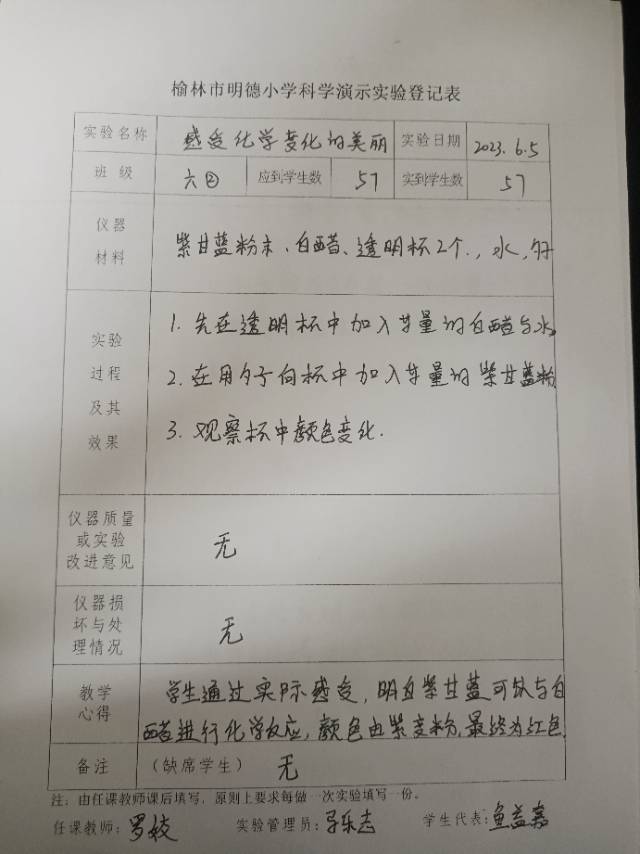 榆林市明德小学科学演示实验登记表
实验名称 感受化学变化的美丽 实验日期 2023.6.5
班级 六② 应到学生数 57 实到学生数 57
仪器
材料
紫甘蓝粉末、白醋、透明杯2个.,水,勺
实验
过程
及其
效果
1. 先在透明杯中加入等量的白醋与水
2. 在用勺子向杯中加入等量的紫甘蓝粉
3. 观察杯中颜色变化.
仪器质量
或实验
改进意见
无
仪器损
坏与处
理情况
无
教学
心得
学生通过实际感受,明白紫甘蓝可以与白
醋进行化学反应,颜色由紫变粉,最终为红色.
备注 (缺席学生) 无
注:由任课教师课后填写,原则上要求每做一次实验填写一份。
任课教师: 罗 实验管理员: 学生代表: 鱼益嘉